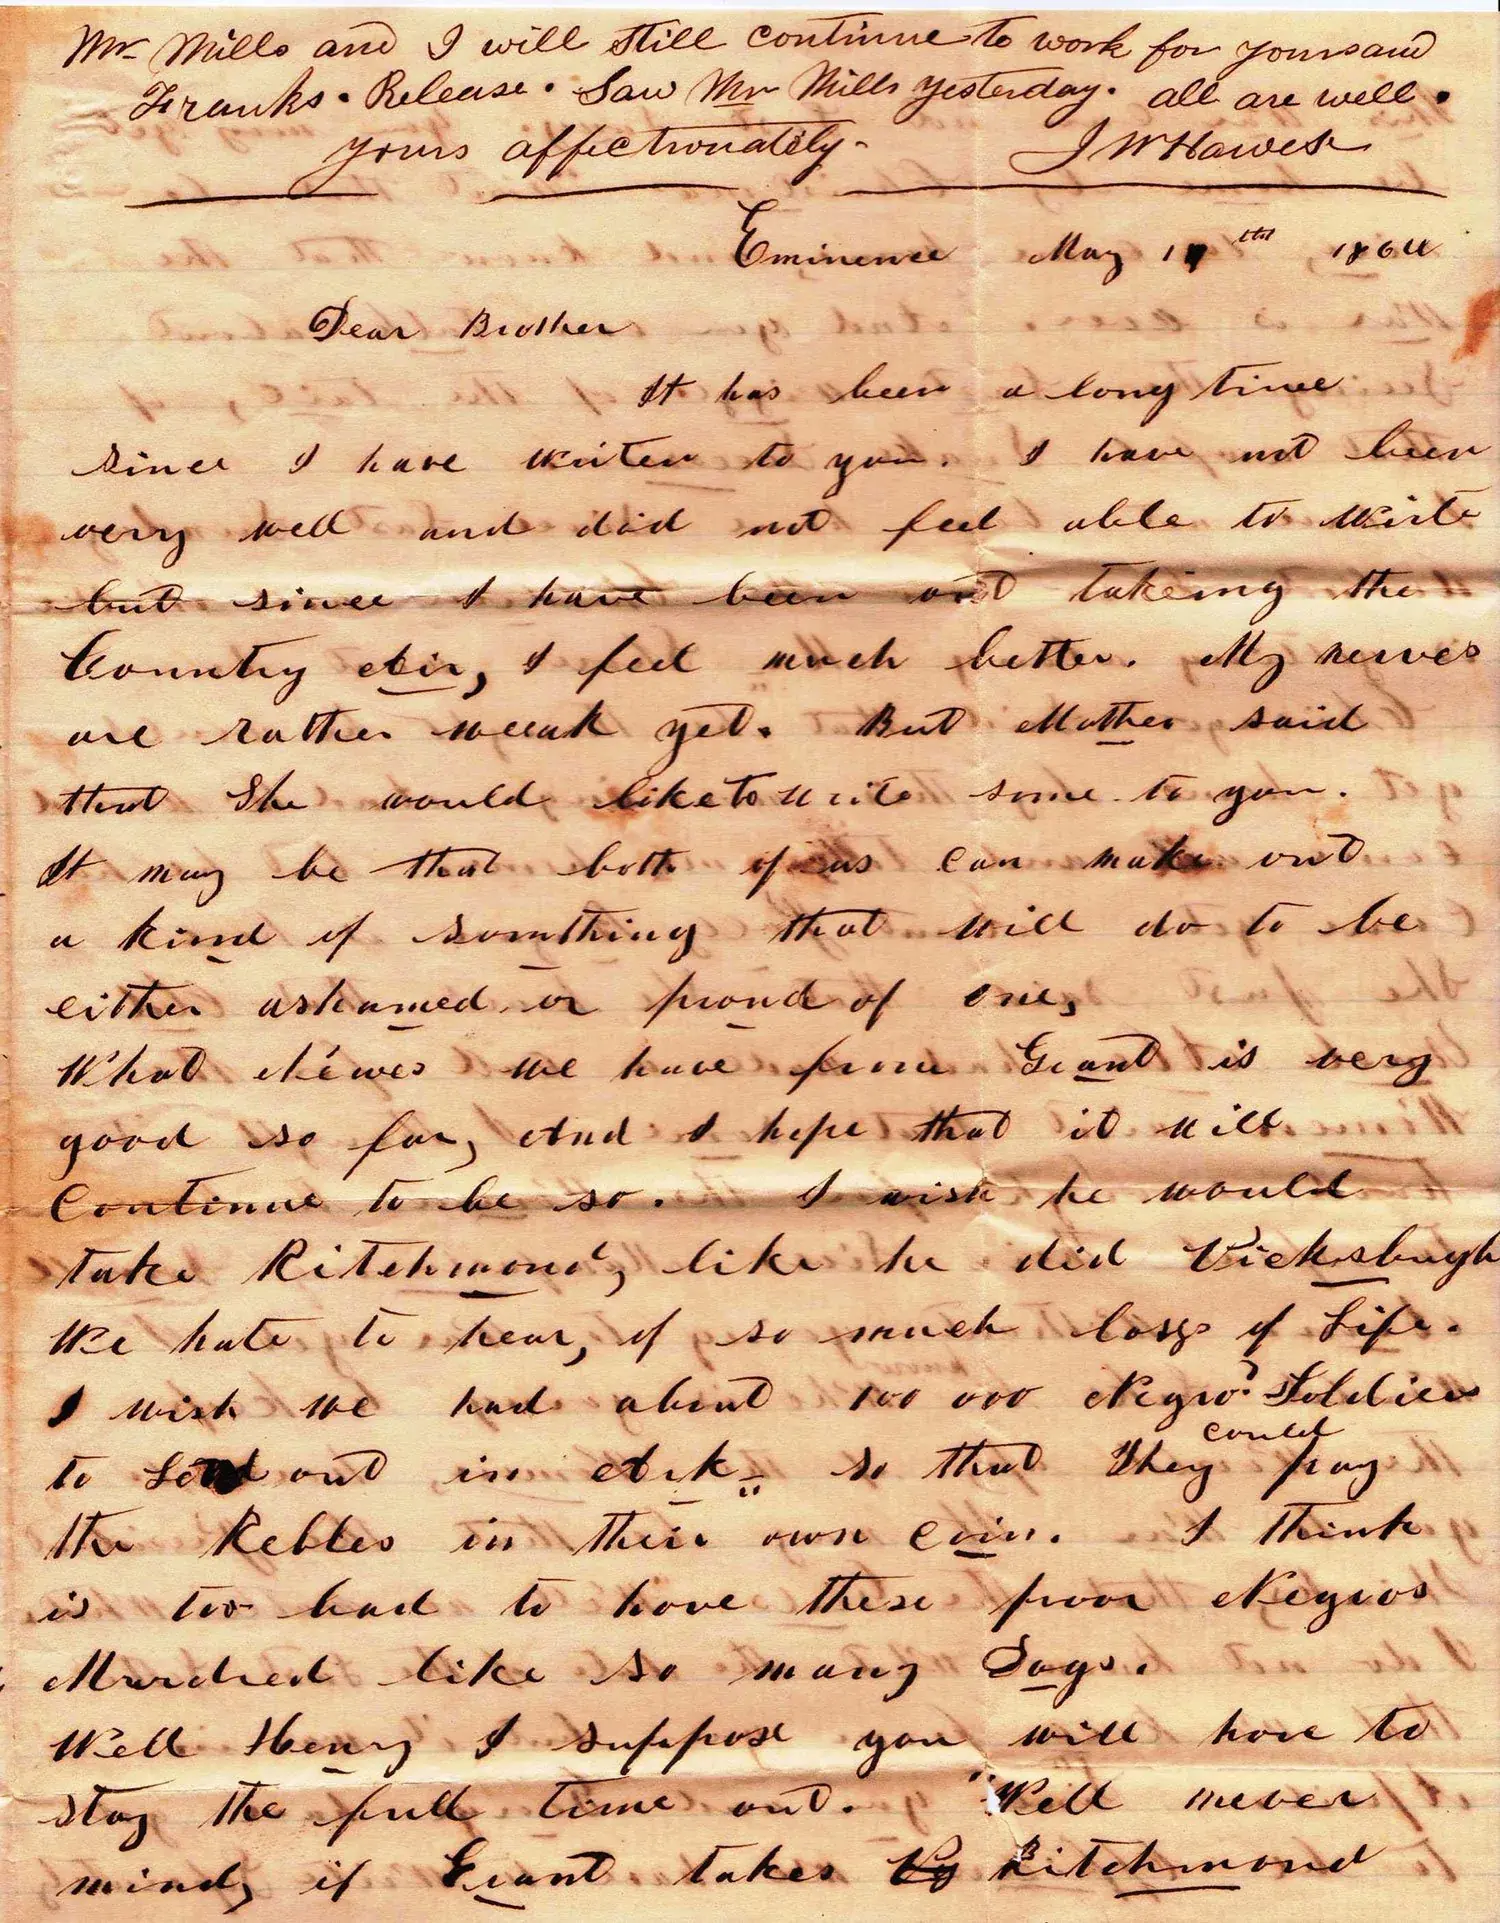 Mr. Mills and I will still continue to work for yours and
Franks. Release. Saw Mr Mills yesterday. all are well.
yours affectionately. J W Hawes
Eminence May 17th 1864
Dear Brother
It has been a long time
since I have writen to you. I have not been
very well and did not feel able to write
but since I have been out takeing the
Country Air, I feel much better. My nerves
are rather weeak yet. But Mother said
that She would like to write some to you.
It may be that both of us can make out
a kind of somthing that will do to be
either ashamed or proud of one,
What Newes we have from Grant is very
good so far, And I hope that it will
Continue to be so. I wish he would
take Ritchmond, like he did Vicksbugh
We hate to hear, of so much loss of Life.
I wish we had about 100 000 Negro Soldiers
to Send out in Ark so that They could pay
the Rebles in their own coin. I think
is too bad to have these poor Negros
Murdred like so many Dogs.
Well Henry I suppose you will have to
stay the full time out. Well never
mind, if Grant takes Ritchmond